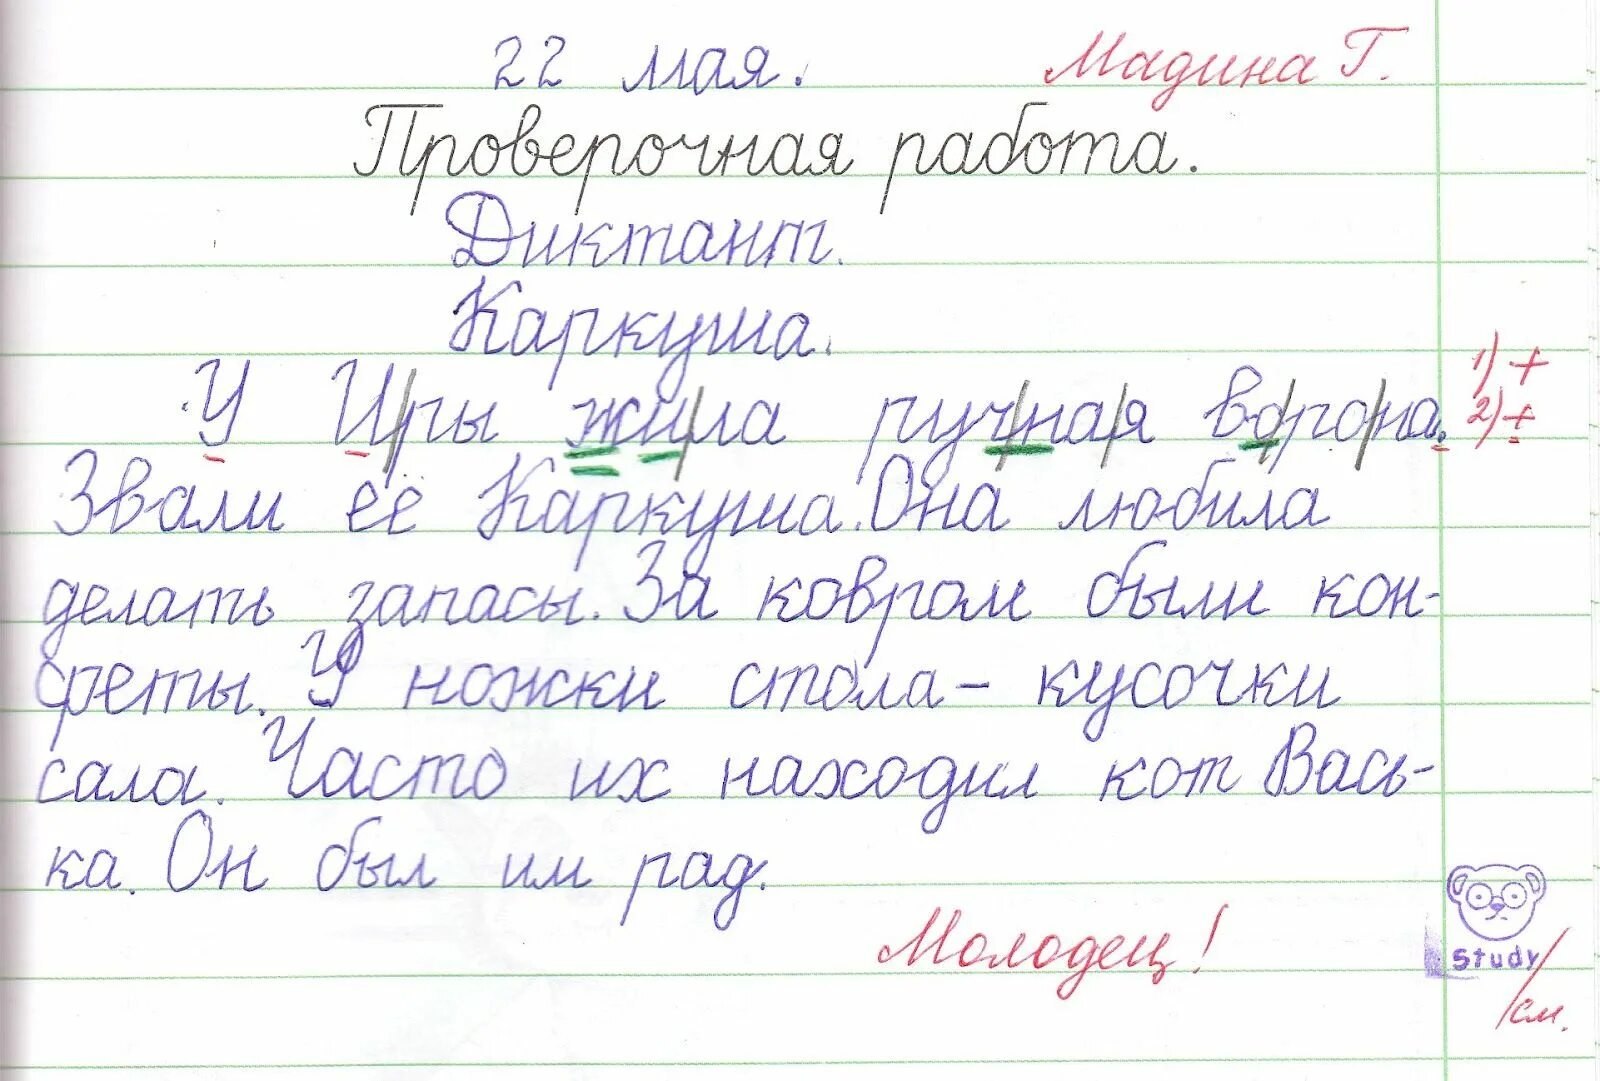 22 мая. Мадина Г.
Проверочная работа.
Диктант.
Каркуша.
У Иры жила ручная ворона. 1) +
2) +
Звали её Каркуша. Она любила
делать запасы. За ковром были кон-
феты. У ножки стола – кусочки
сала. Часто их находил кот Вась-
ка. Он был им рад.
Молодец!
Study
/см.